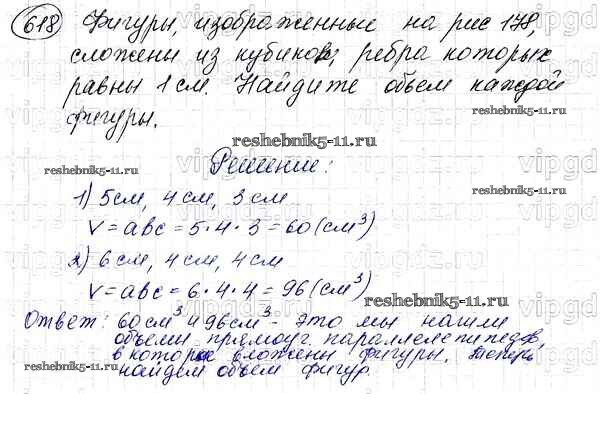 618 Фигуры, изображенные на рис 178,
сложены из кубиков, ребра которых
равны 1 см. Найдите объем каждой
фигуры.
reshebnik5-11.ru
reshebnik5-11.ru
Решение:
1) 5 см, 4 см, 3 см
V = abc = 5·4·3 = 60 (см³)
2) 6 см, 4 см, 4 см
V = abc = 6·4·4 = 96 (см³)
reshebnik5-11.ru
Ответ: 60 см³ и 96 см³ - это мы нашли
объемы прямоуг. параллелепипедов,
в которые вложены фигуры. Теперь
найдем объем фигур.
reshebnik5-11.ru
vipgdz.ru